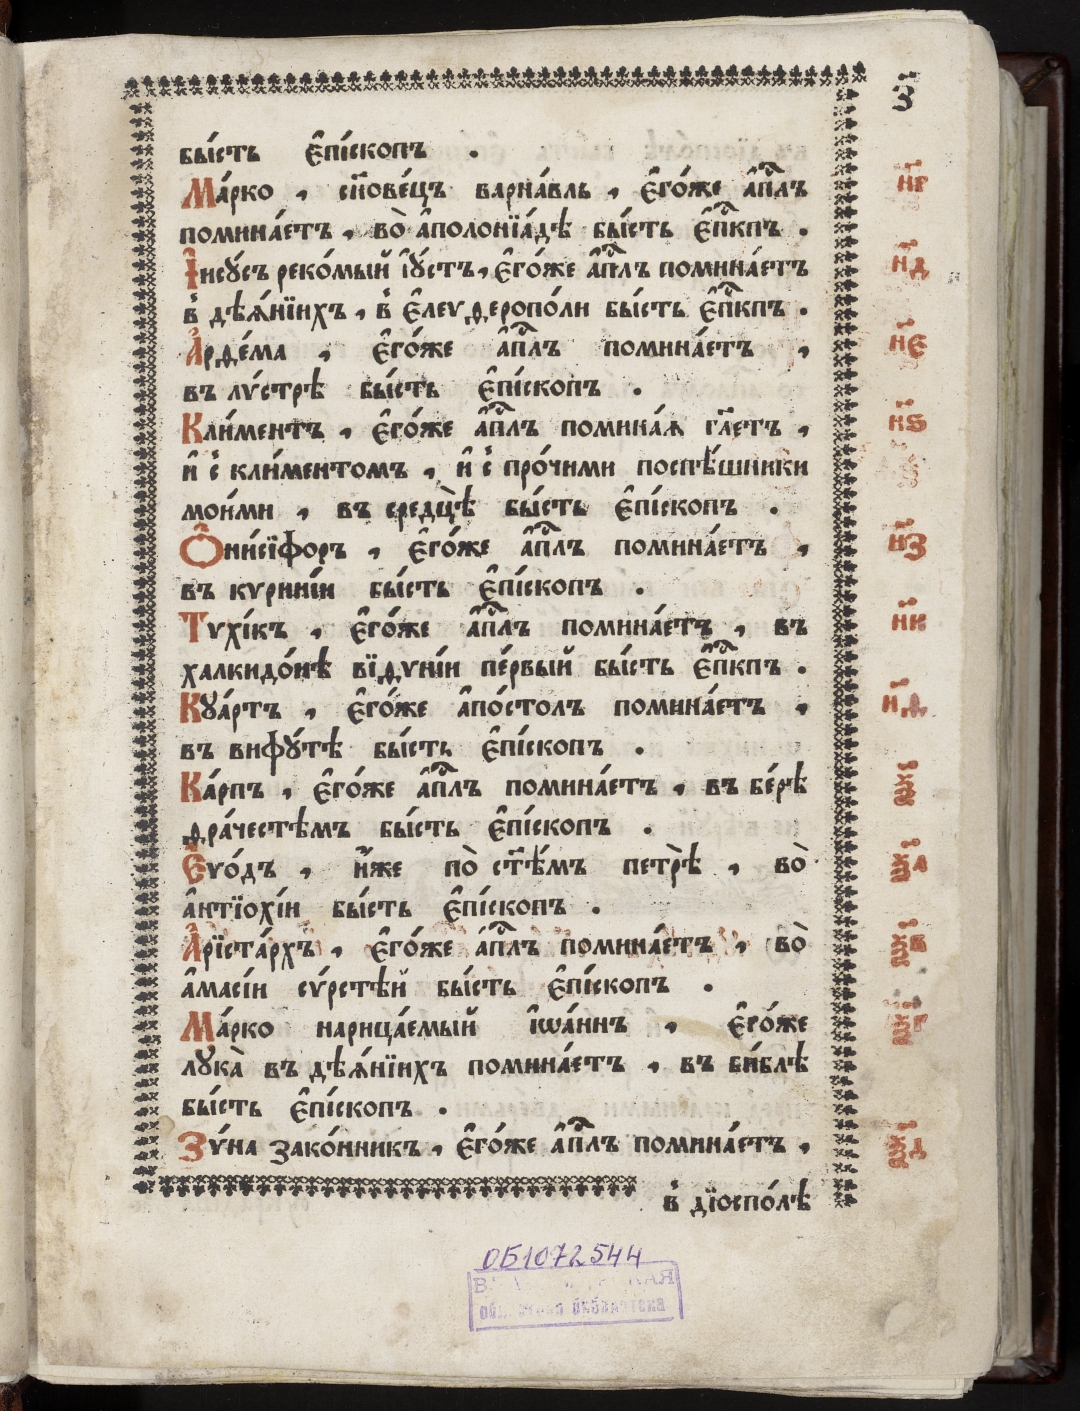 З҃
бы́сть Е҆пі́скопъ .
Ма́рко , сн҃ове́цъ варна́вль , Е҆го́же а҆пⷭ҇лъ
н҃г
помина́етъ , во̀ а҆полонїа́дѣ бы́сть Е҆пⷭ҇кпъ .
І҆исꙋ́съ реко́мый і҆ꙋ́стъ , Е҆го́же а҆пⷭ҇лъ помина́етъ
н҃д
в̾ дѣѧ́нїихъ , в̾ Е҆леѵѳеропо́ли бы́сть Е҆пⷭ҇кпъ .
А҆рѳе́ма , Е҆го́же а҆пⷭ҇лъ помина́етъ ,
н҃е
въ лѵ́стрѣ бы́сть Е҆пі́скопъ .
Кли́ментъ , Е҆го́же а҆пⷭ҇лъ помина́ѧ гл҃етъ ,
н҃ѕ
и҆ с̾ кли́ментомъ , и҆ с̾ про́чими поспѣ́шники
мои́ми , въ средцѣ̀ бы́сть Е҆пі́скопъ .
Ѻ҆ни́сїфоръ , Е҆го́же а҆пⷭ҇лъ помина́етъ ,
н҃з
въ кѵрині́и бы́сть Е҆пі́скопъ .
Тѵхі́къ , Е҆го́же а҆пⷭ҇лъ помина́етъ , въ
н҃и
халкидо́нѣ вїѳѵні́и пе́рвый бы́сть Е҆пⷭ҇кпъ .
Кꙋа́ртъ , Е҆го́же а҆по́столъ помина́етъ ,
н҃ѳ
въ вифꙋ́тѣ бы́сть Е҆пі́скопъ .
Ка́рпъ , Е҆го́же а҆пⷭ҇лъ помина́етъ , въ бе́рѣ
ѯ҃
ѳра́честѣмъ бы́сть Е҆пі́скопъ .
Е҆ѵо́дъ , и҆́же по̀ ст҃ѣ́мъ петрѣ̀ , во̀
ѯ҃а
а҆нтїохі́и бы́сть Е҆пі́скопъ .
А҆рїста́рхъ , Е҆го́же а҆пⷭ҇лъ помина́етъ , во̀
ѯ҃в
а҆масі́и сѵ́рстѣй бы́сть Е҆пі́скопъ .
Ма́рко нарица́емый і҆ѡа́ннъ , Е҆го́же
ѯ҃г
лꙋка̀ въ дѣѧ́нїихъ помина́етъ , въ би́блѣ
бы́сть Е҆пі́скопъ .
Зѵ́на зако́нникъ , Е҆го́же а҆пⷭ҇лъ помина́етъ ,
ѯ҃д
в̾ дїоспо́лѣ
ОБ1072544
библиотека